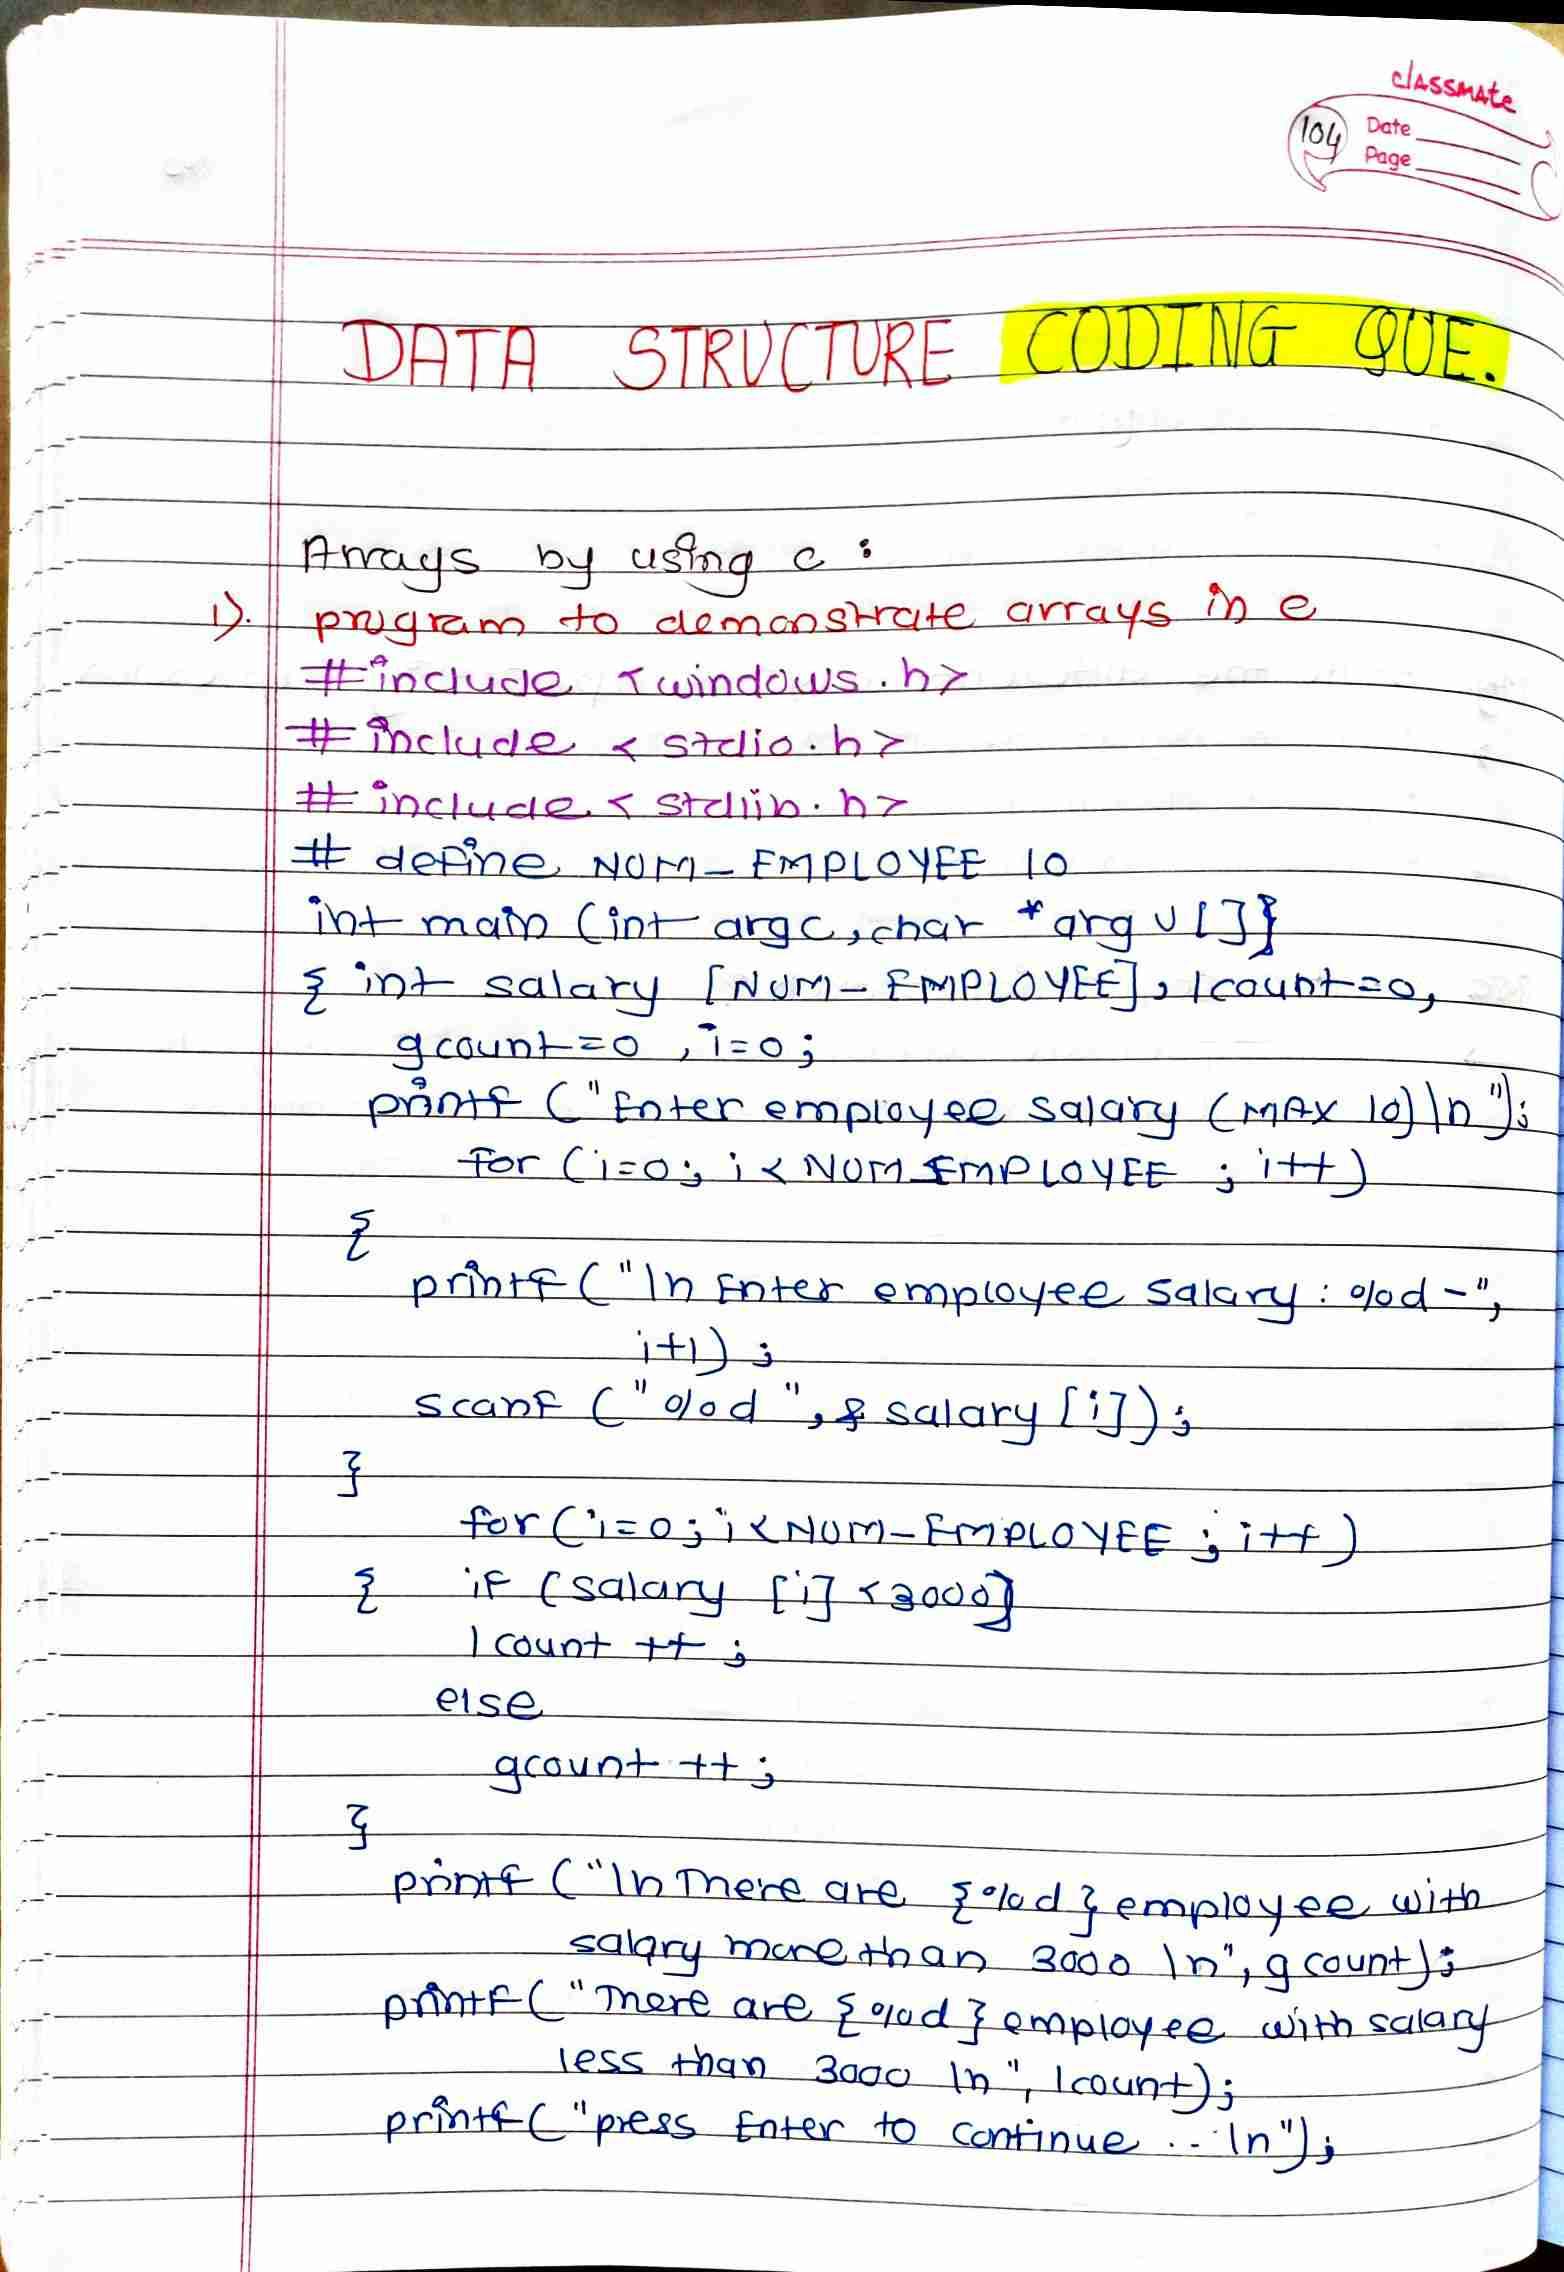 classmate
104 Date
Page
DATA STRUCTURE CODING QUE.
Arrays by using c :
1). program to demonstrate arrays in c
#include <windows.h>
#include <stdio.h>
#include <stdlib.h>
# define NUM_EMPLOYEE 10
int main (int argc, char *argv[]}
{ int salary [NUM_EMPLOYEE], lcount=0,
gcount=0 , i=0;
printf ("Enter employee salary (MAX 10)\n");
for (i=0; i<NUM_EMPLOYEE ; i++)
{
printf("\n Enter employee salary : %d -",
i+1) ;
scanf ("%d", & salary [i]);
}
for(i=0; i<NUM_EMPLOYEE ; i++)
{ if (salary [i] <3000]
lcount ++ ;
else
gcount ++ ;
}
printf ("\n There are {%d} employee with
salary more than 3000 \n", gcount);
printf("There are {%d} employee with salary
less than 3000 \n", lcount);
printf("press Enter to continue .. \n");